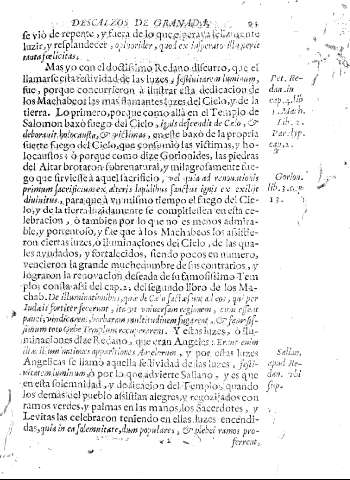 DESCALZOS DE GRANADA. 93
se vió de repente, y fuera de lo que esperava se llamente
luzir, y resplandecer,
tanta fœlicitas.
Mas yo con el doctissimo Redano discurro, que el
llamarse esta festividad de las luzes, festivitatem luminum,
fue, porque concurrieron à ilustrar esta dedicacion de
los Machabeos las mas flamantes luzes del Cielo, y de la
tierra. Lo primero, porque como allà en el Templo de
Salomon baxò fuego del Cielo, ignis descendit de Cœlo, &
devoravit holocausta, & victimas, en este baxò de la propria
suerte fuego del Cielo, que consumiò las victimas, y ho-
locaustos: ò porque como dize Gorionides, las piedras
del Altar brotaron sobrenatural, y milagrosamente fue-
go que sirviesse à aquel sacrificio, vel quia ad renovationis
primum sacrificium ex alteris lapidibus sanctus ignis exilijt
divinitus, para que à un mismo tiempo el fuego del Cie-
lo, y de la tierra luzidamente se compitiessen en esta ce-
lebracion, ò tambien por lo que no es menos admira-
ble, y portentoso, y fue que à los Machabeos los assistie-
ron ciertas luzes, ò iluminaciones del Cielo, de las qua-
les ayudados, y fortalecidos, siendo pocos en numero,
vencieron la grande muchedumbre de sus contrarios, y
lograron la renovacion deseada de su famosissimo Tem-
plo: consta assi del cap. 2. del segundo libro de los Ma-
chab. De illuminationibus, quæ de Cœlo factæ sunt ad eos, qui pro
Iudæis fortiter fecerunt, ita ut universam regionem, cum essent
pauci, vindicarent, & barbaram multitudinem fugarent, & famosis-
simum toto Orbe Templum recuperarent. Y estas luzes, ò ilu-
minaciones dize Redano, que eran Angeles: Erant enim
illæ illuminationes apparitiones Angelorum, y por estas luzes
Angelicas se llamò aquella festividad de las luzes, festi-
vitatem luminum, ò por lo que advierte Sallano, y es que
en esta solemnidad, y dedicacion del Templo, quando
los demàs del pueblo assistian alegres, y regozijados con
ramos verdes, y palmas en las manos, los Sacerdotes, y
Levitas las celebraron teniendo en ellas luzes encendi-
das, quia in ea solemnitate, dum populares, & plebei ramos pro-
ferrent,
Pet. Re-
dan. in
cap. 4. lib.
1. Mach.
Lib. 2.
Paralyp.
cap. 7.
Gorion.
lib. 3. c.
13.
Sallan.
apud Re-
dan. ubi
sup.